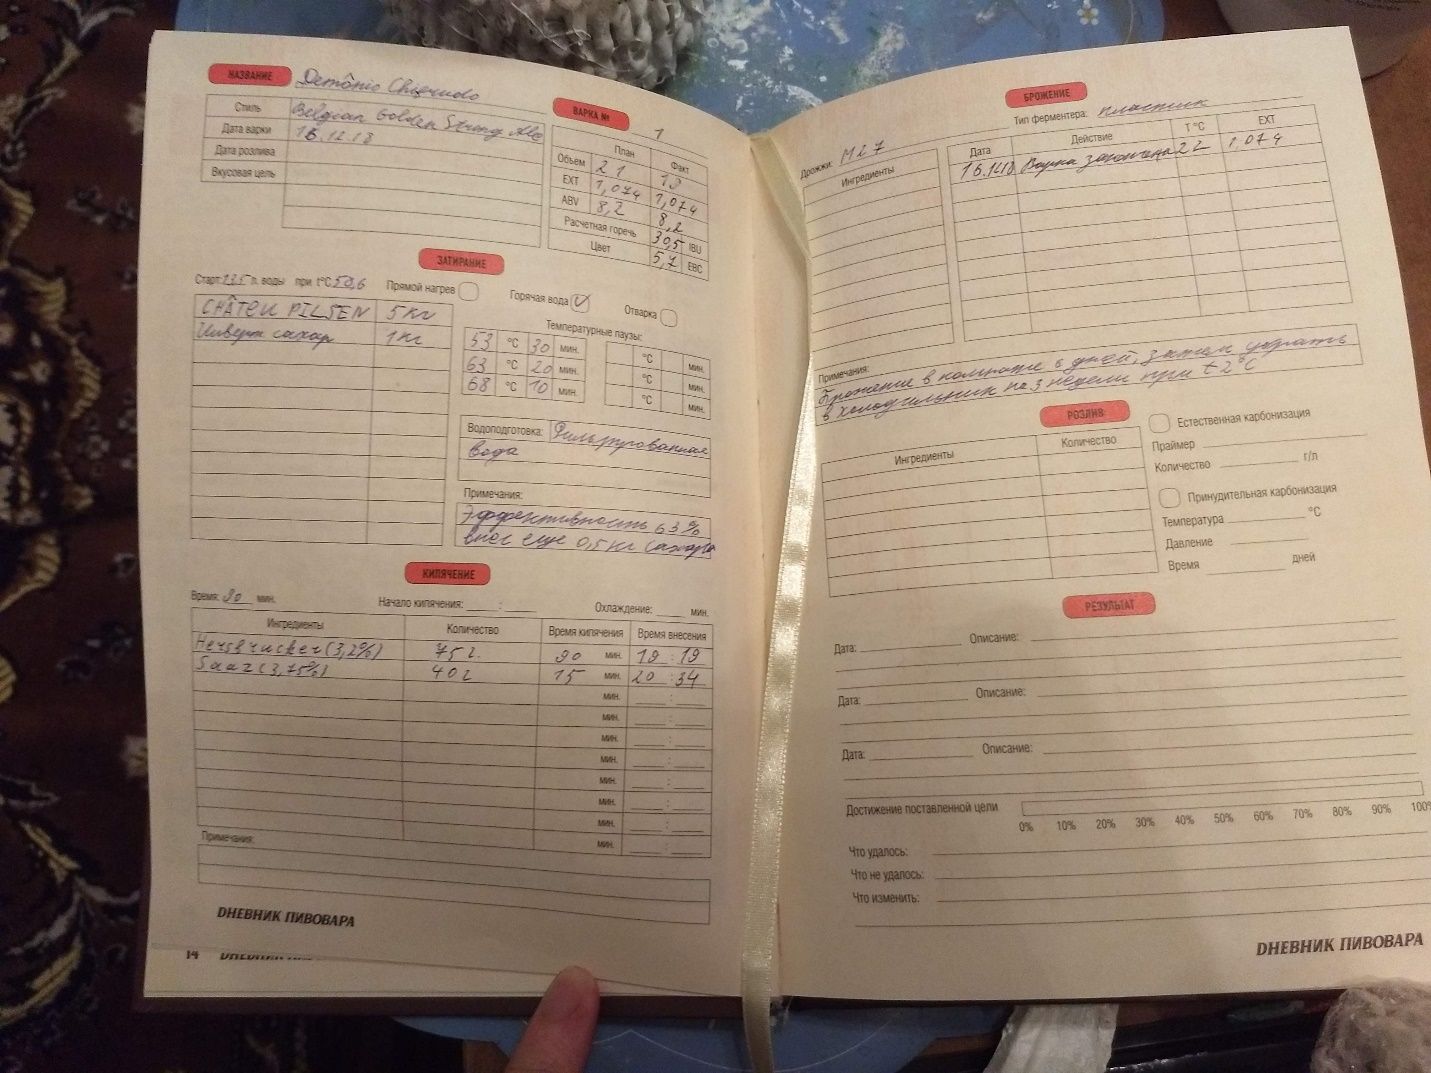 НАЗВАНИЕ Demônio
Стиль Belgian Golden Strong Ale
Дата варки 16.12.18
Дата розлива
Вкусовая цель
ВАРКА № 1
План Факт
Объем 21
EXT 1,074 1,074
ABV 8,2 8,2
Расчетная горечь 30,5 IBU
Цвет 5,7 EBC
ЗАТИРАНИЕ
Старт: л. воды при t°C 59,6 Прямой нагрев Горячая вода V Отварка
CHÂTEU PILSEN 5 кг
Инверт сахар 1 кг
Температурные паузы:
53 °C 30 мин. °C мин.
63 °C 20 мин. °C мин.
68 °C 10 мин. °C мин.
Водоподготовка: Фильтрованная
вода
Примечания:
Эффективность 63%
внес еще 0,5 кг сахара
КИПЯЧЕНИЕ
Время: 90 мин. Начало кипячения: : Охлаждение: мин.
Ингредиенты Количество Время кипячения Время внесения
Hersbrucker (3,2%) 75 г. 90 мин. 19 : 19
Saaz (3,75%) 40 г 15 мин. 20 : 34
мин. :
мин. :
мин. :
мин. :
мин. :
мин. :
мин. :
мин. :
Примечания:
DНЕВНИК ПИВОВАРА
14
БРОЖЕНИЕ
Дрожжи: M27 Тип ферментера: пластик
Ингредиенты
Дата Действие T °C EXT
Варка закончена 22 1,074
Примечания:
Брожение в комнате 6 дней, затем убрать
в холодильник на 3 недели при t 2°C
РОЗЛИВ
Ингредиенты Количество
Естественная карбонизация
Праймер
Количество г/л
Принудительная карбонизация
Температура °C
Давление
Время дней
РЕЗУЛЬТАТ
Дата: Описание:
Дата: Описание:
Дата: Описание:
Достижение поставленной цели
0% 10% 20% 30% 40% 50% 60% 70% 80% 90% 100%
Что удалось:
Что не удалось:
Что изменить:
DНЕВНИК ПИВОВАРА